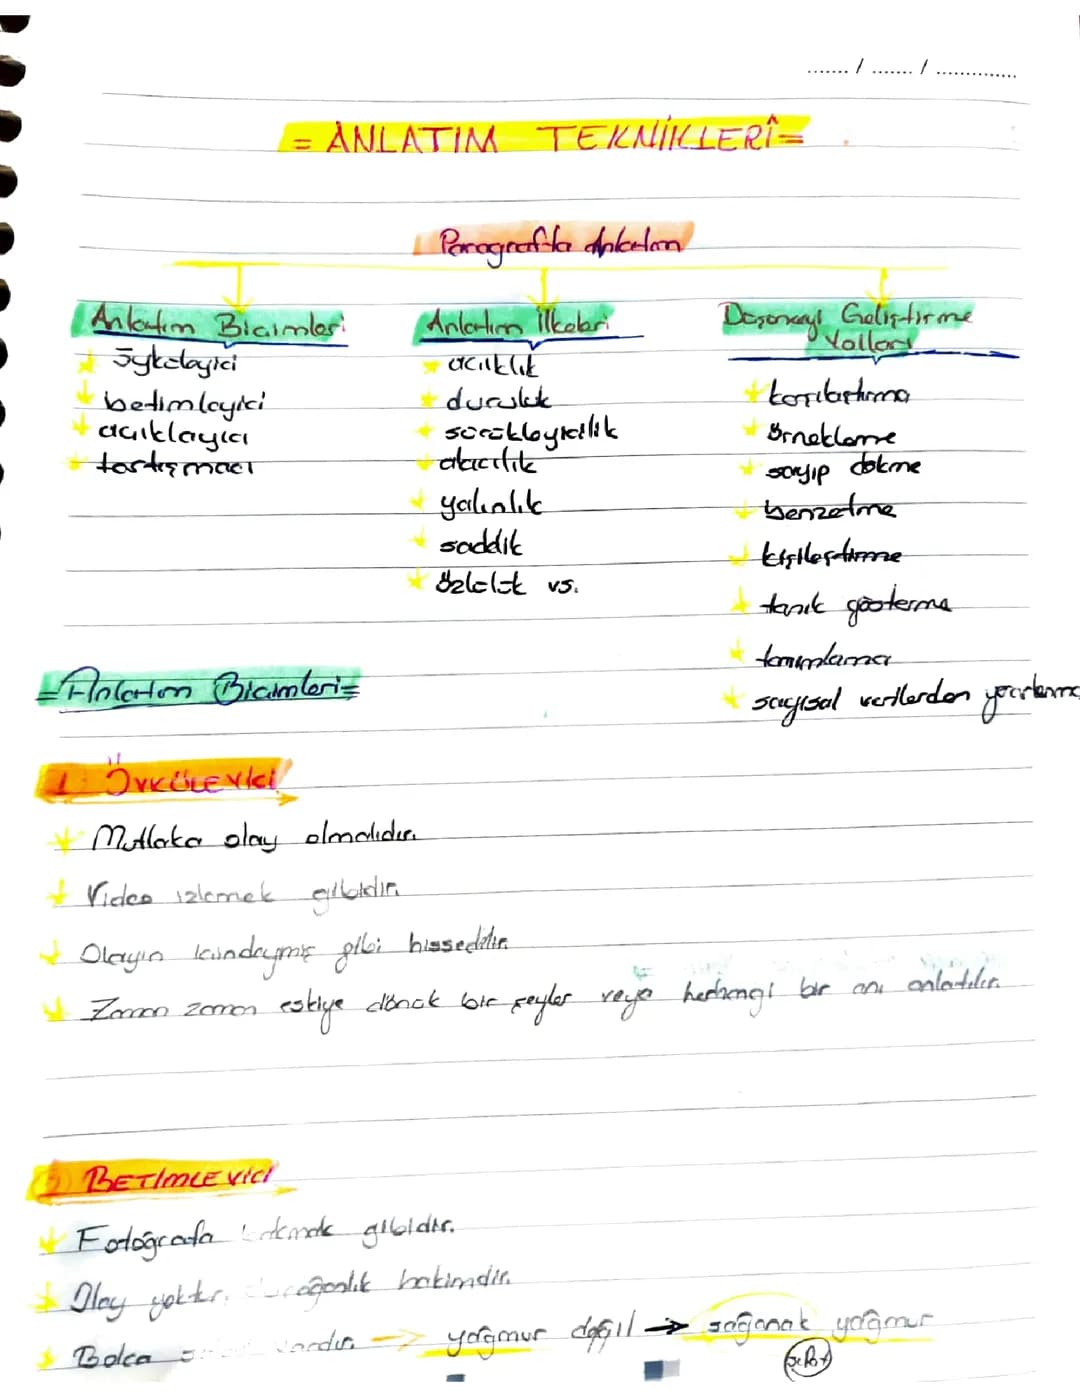 ....... / ....... / ..............
= ANLATIM TEKNİKLERİ =
Paragrafta Anlatım
Anlatım Biçimleri
öyküleyici
betimleyici
açıklayıcı
tartışmacı
Anlatım İlkeleri
açıklık
duruluk
sürükleyicilik
akıcılık
yalınlık
saddlık
özlülük vs.
Düşünceyi Geliştirme
Yolları
karşılaştırma
örnekleme
sayıp dökme
benzetme
kişileştirme
tanık gösterme
tanımlama
sayısal verilerden yararlanma
= Anlatım Biçimleri =
1. ÖYKÜLEYİCİ
Mutlaka olay olmalıdır.
Video izlemek gibidir.
Olayın içindeymiş gibi hissedilir.
Zaman zaman eskiye dönük bir şeyler veya herhangi bir anı anlatılır.
2) BETİMLEYİCİ
Fotoğrafa gibidir.
Olay yoktur, durağanlık hakimdir.
Bolca vardır → yağmur değil → sağanak yağmur